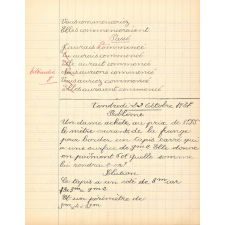 Vous commenceriez
Elles commenceraient
Passé
J'aurais commencé
Tu aurais commencé
Elle aurait commencé
Nous aurions commencé
Vous auriez commencé
Elles auraient commencé
Vendredi 22 Octobre
Problème
Une dame achète au prix de
le mètre courant de la frange
pour border un tapis carré qui
a une surface de 9m2. Elle donne
en paiement Quelle somme
lui rendra
Solution
Le tapis a un côté de 3m car
3m 3m 9m2
Et son périmètre de